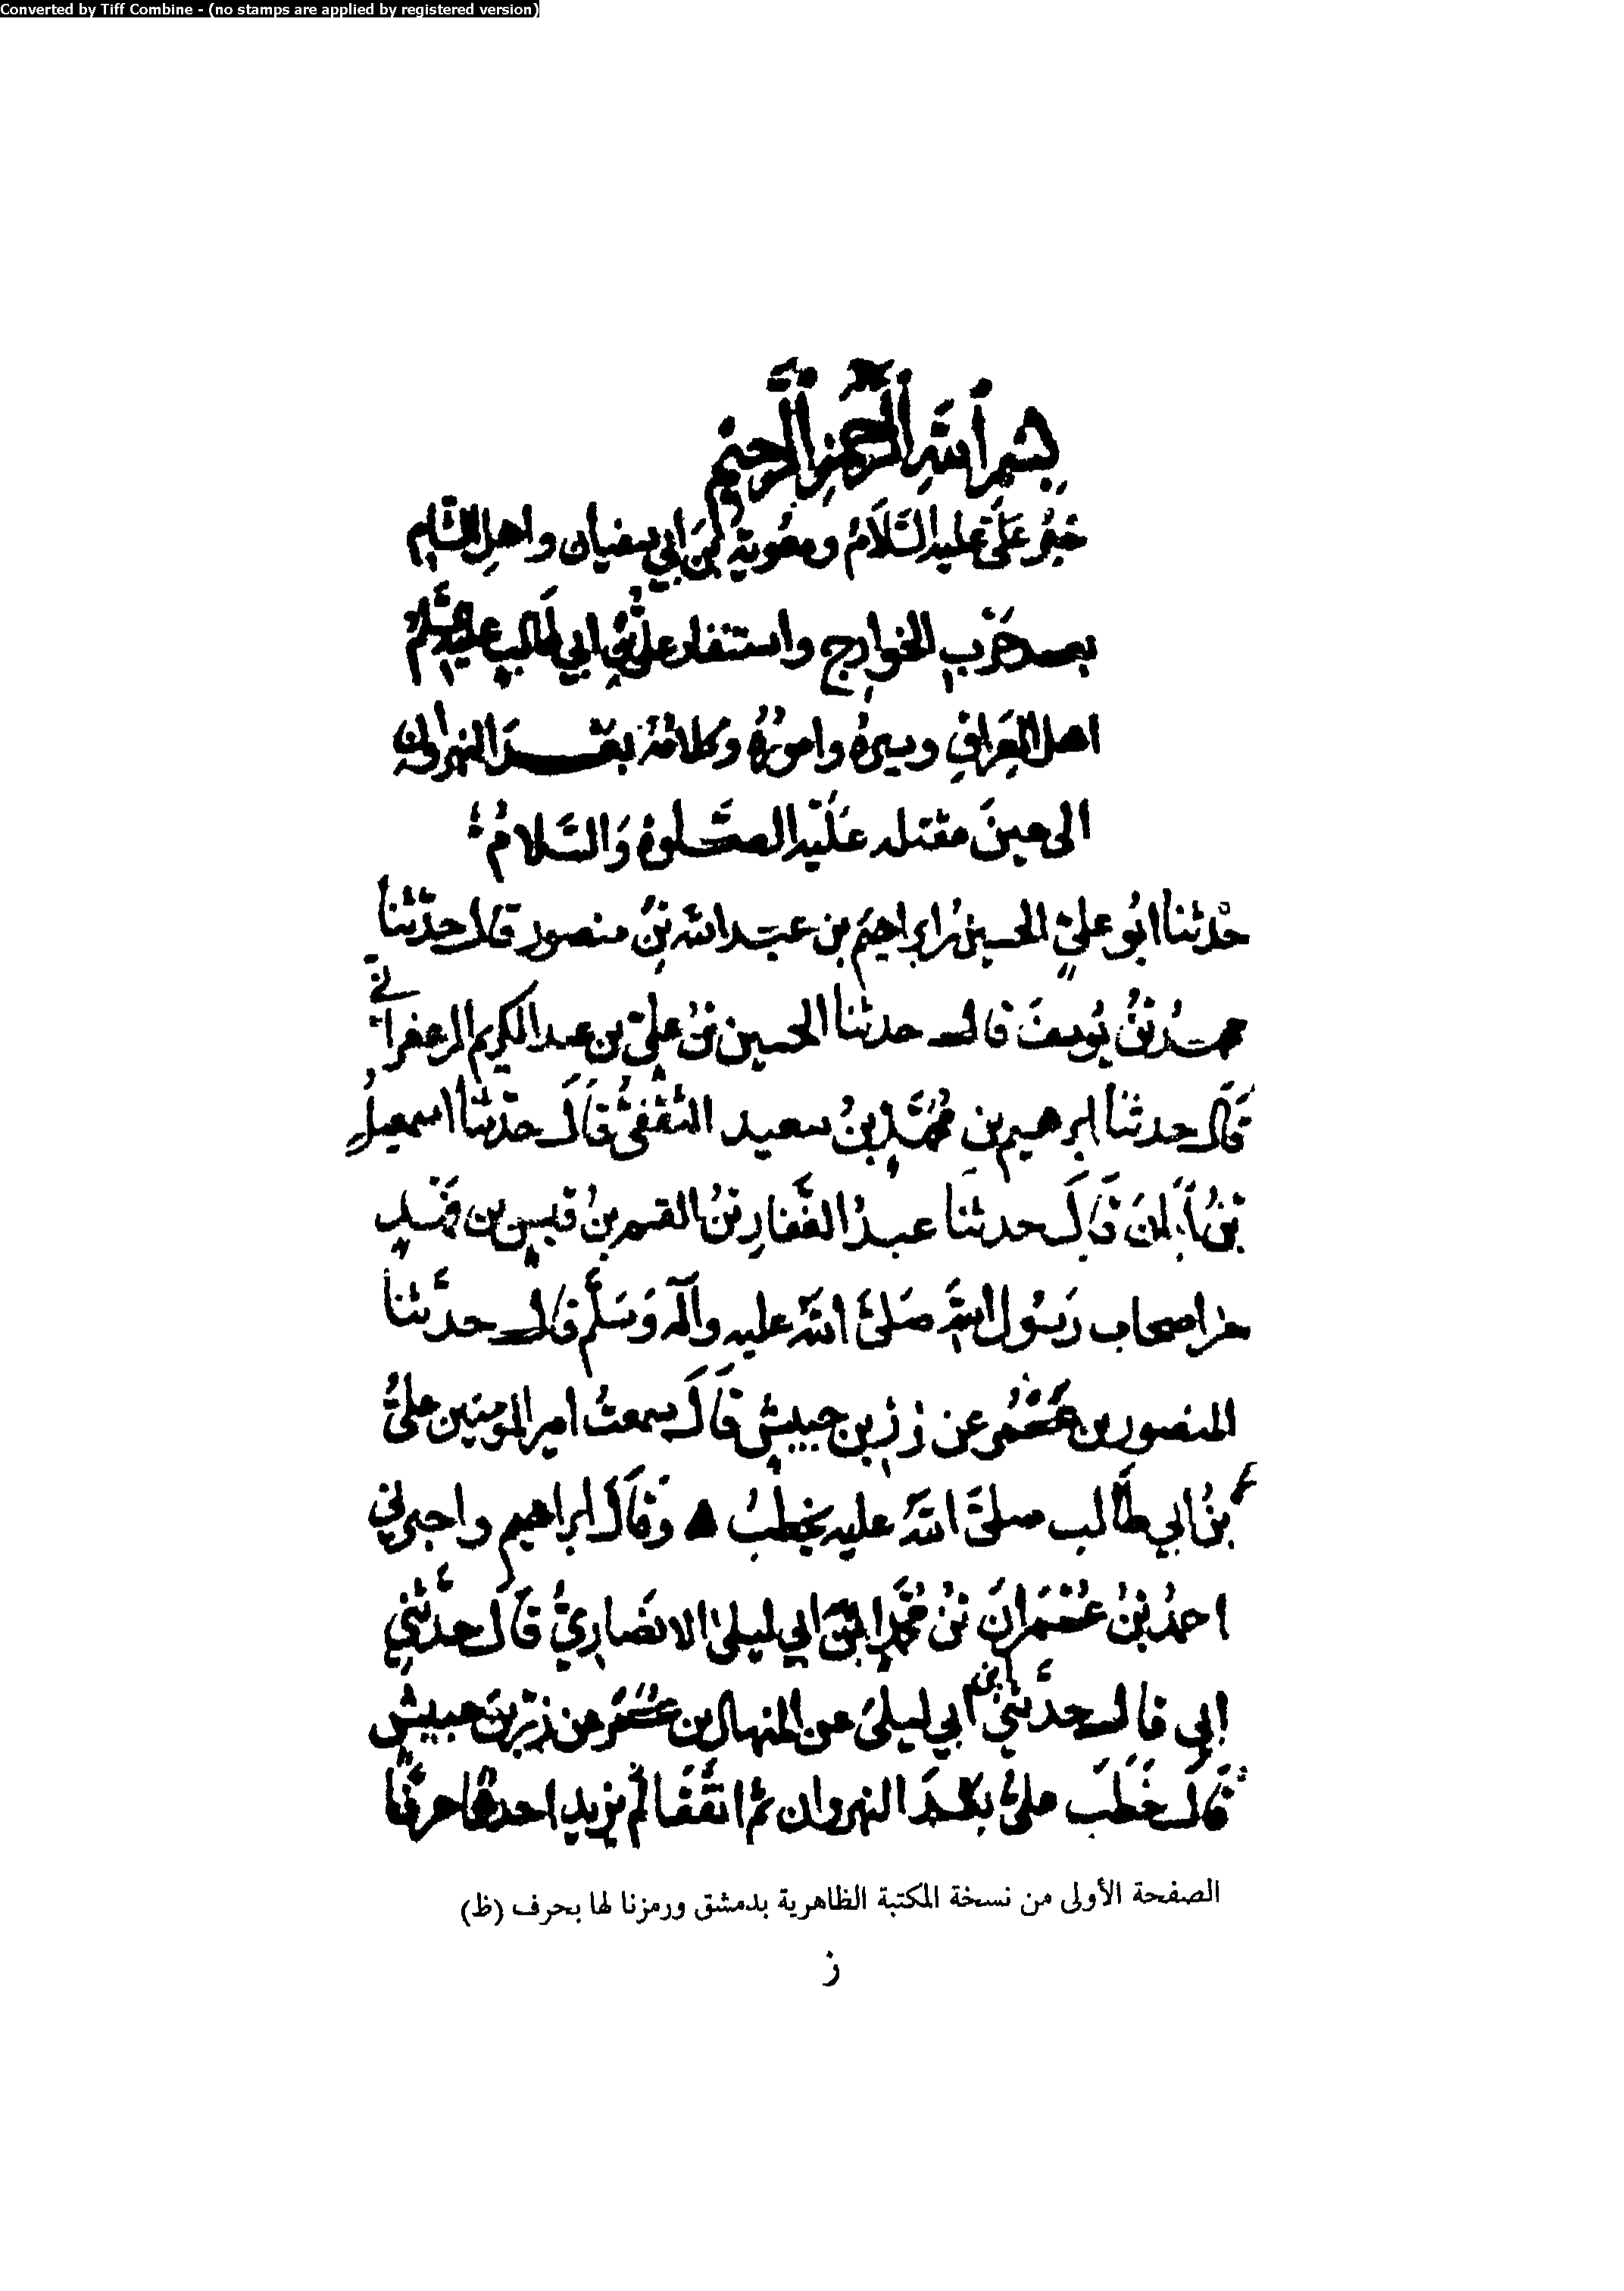 Converted by Tiff Combine - (no stamps are applied by registered version)
بِسْمِ اَللّهِ اَلرَّحْمنِ الرَّحِيم
خَبَرُ عَلَىٍّ عليه السَّلَامُ ومعوية بن ابي سفيان واهل الشام
بعد حَرْبِ الخوارج واستنفار علي بن ابي طالب عليه السلام
اهل العِرَاقِ وسيرهُ وامورهُ وكلامهُ بعْدَ النهروان
الى حينَ مقتله عَلَيْه الصَّلوة وَالسَّلامُ
حدْثنا ابُو عليٍّ الحسين بن ابراهيم بن عبد الله بن منصور قال حدّثنا
محمدُ بنُ يُوسفَ قال حدثنا الحسين بنُ علىّ بن عبد الكريم الزعفرانى
قَال حدثنا ابرهيم بن مُحَمَّدِ بنُ سعيد الثقفىُّ قَالَ حدّثنا اسمعيلُ
بنُ اَبانَ قَالَ حدثنَا عبدُ الغَفَّارِ بنُ القسم بنُ قيسِ بن
من اصحاب رَسُول اللهِ صَلىَّ اللهُ عليه وآله وَسَلَّم قال حدَّثنا
المنصور بن عن زر بن حبيش قَالَ سمعتُ امير المومنين علىُّ
بنُ ابي طَالب صلىَّ اللهُ عليه يخطبُ وَقَالَ ابراهيم واخبرني
احمدُ بْنُ عِمْرانَ بْنُ مُحَمَّدِ بن ابي ليلى الانصَاريُّ قَالَ حدثَّنِي
ابي قال حدَّثني ابن ابي ليلىَ عن المنهال بن عن زِرِّ بنَ حبيشِ
قَالَ خَطَبَ علىُّ بعْدَ النهروان ثم اتفَّقَا لم يزيد احدهما حرفًا
الصفحة الأولى من نسخة المكتبة الظاهرية بدمشق ورمزنا لها بحرف (ظ)
ز